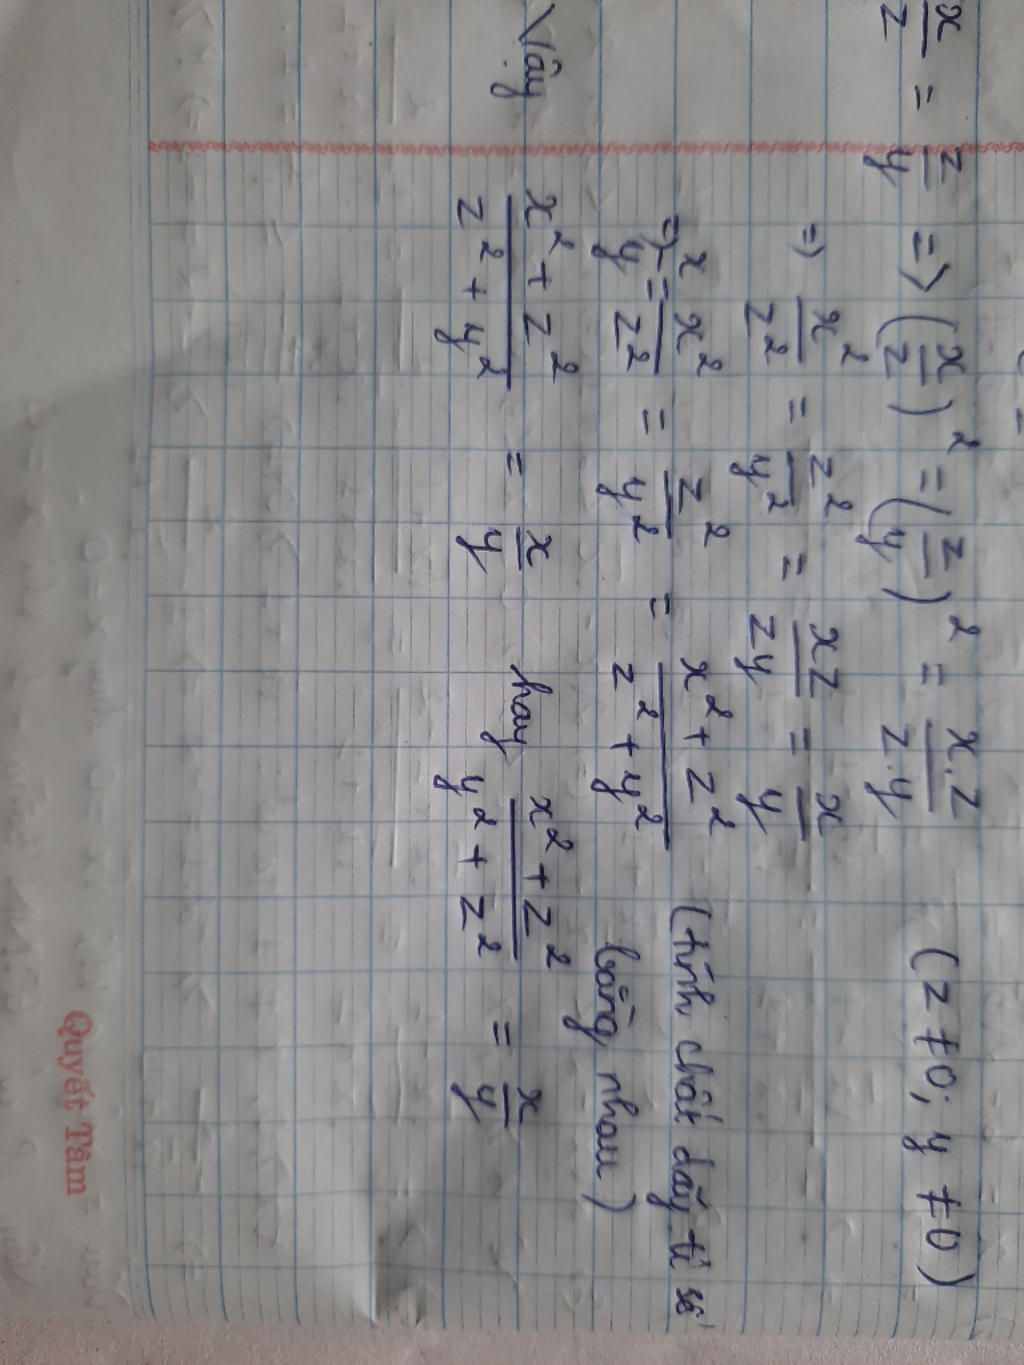 x/z = z/y => (x/z)² = (z/y)² = x.z/z.y (z ≠ 0; y ≠ 0)
=> x²/z² = z²/y² = xz/zy = x/y
=> x/y = x²/z² = z²/y² = x²+z²/z²+y² (tính chất dãy tỉ số
bằng nhau)
Vậy x²+z²/z²+y² = x/y hay x²+z²/y²+z² = x/y
Quyết Tâm